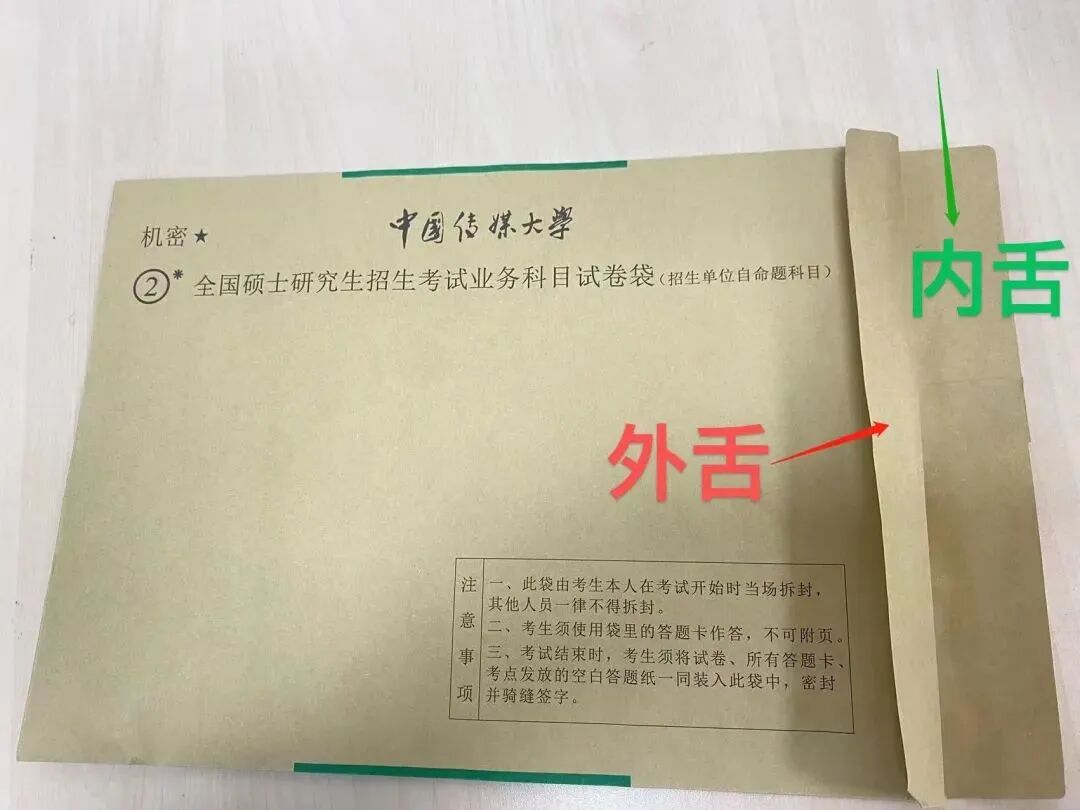 机密★
中国传媒大学
②* 全国硕士研究生招生考试业务科目试卷袋(招生单位自命题科目)
内舌
外舌
注意事项
一、此袋由考生本人在考试开始时当场拆封，
其他人员一律不得拆封。
二、考生须使用袋里的答题卡作答，不可附页。
三、考试结束时，考生须将试卷、所有答题卡、
考点发放的空白答题纸一同装入此袋中，密封
并骑缝签字。